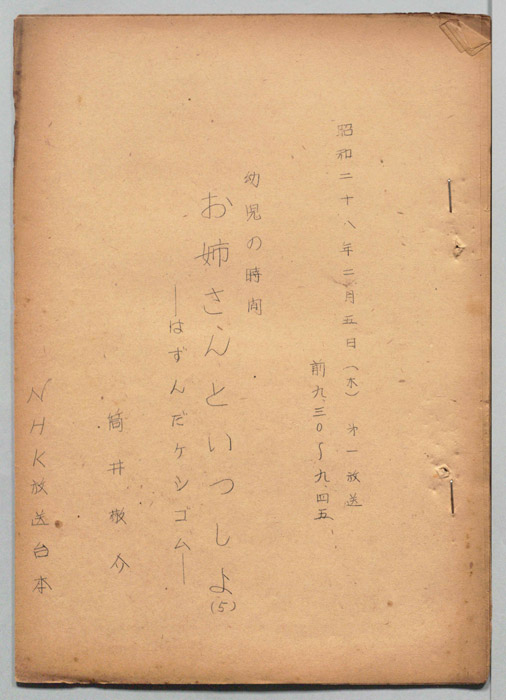 昭和二十八年二月五日（木）　㐧一放送
前九.三〇～九.四五
幼児の時間
お姉さんといつしよ(5)
―はずんだケシゴム―
筒井敬介
NHK放送台本